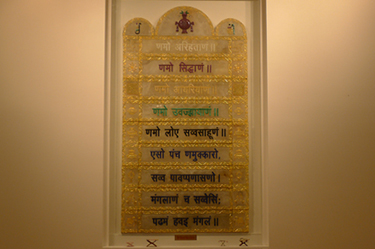 णमो अरिहंताणं॥
णमो सिद्धाणं॥
णमो आयरियाणं॥
णमो उवज्झायाणं॥
णमो लोए सव्वसाहूणं॥
एसो पंच णमुक्कारो,
सव्व पावप्पणासणो।
मंगलाणं च सव्वेसिं,
पढमं हवइ मंगलं॥